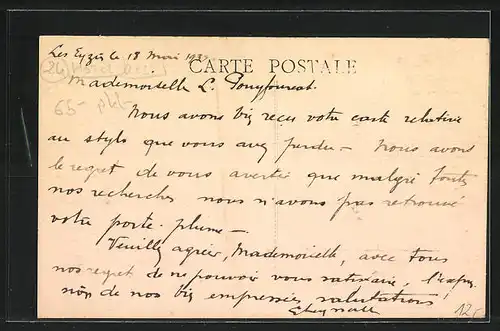 Les Eyzies le 18 Mai 193
CARTE POSTALE
Mademoiselle L.
Nous avons bien reçu votre carte relative
au stylo que vous avez perdu – Nous avons
le regret de vous avertir que malgré toutes
nos recherches nous n'avons pas retrouvé
votre porte-plume –
Veuillez agréer, Mademoiselle, avec tous
nos regret de ne pouvoir vous satisfaire, l'expres-
sion de nos bien empressées salutations!
24
65-
12